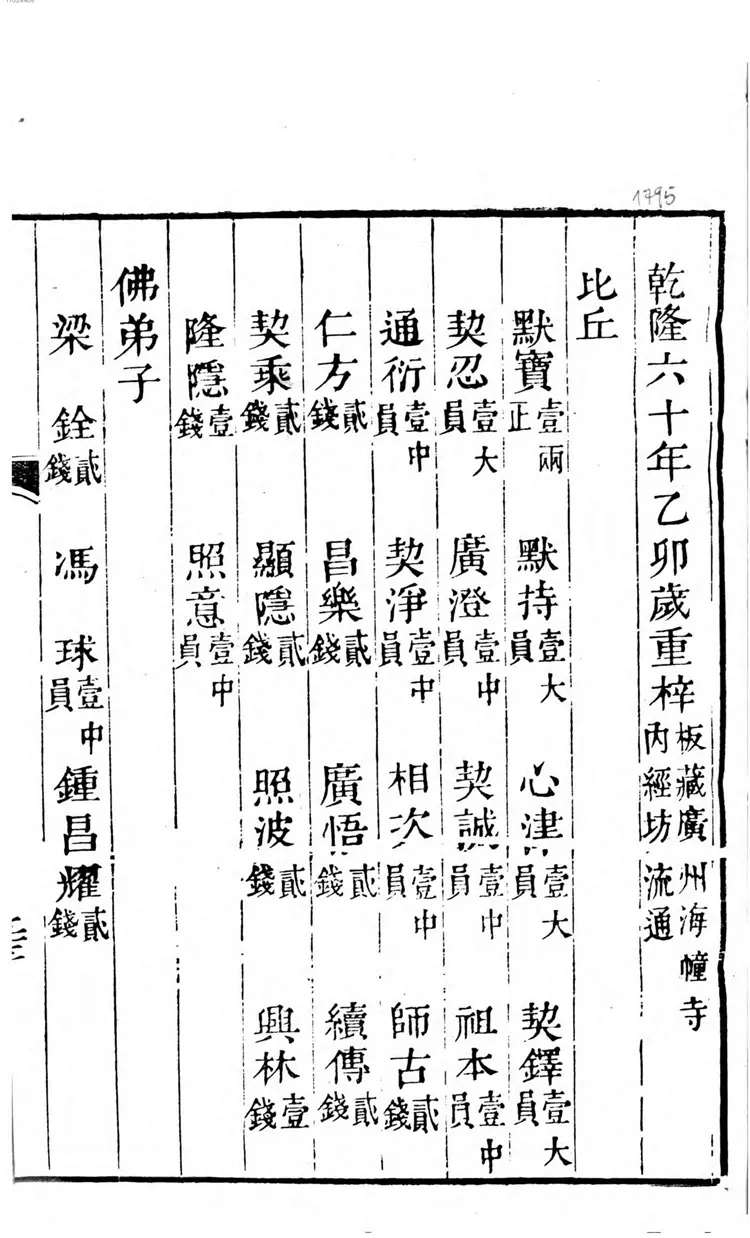 1795
乾隆六十年乙卯歲重梓板藏廣州海幢寺內經坊流通
比丘
默寶壹兩正 默持壹大員 心津壹大員 契鐸壹大員
契忍壹大員 廣澄壹中員 契誠壹中員 祖本壹中員
通衍壹中員 契淨壹中員 相次壹中員 師古貳錢
仁方貳錢 昌樂貳錢 廣悟貳錢 續傳貳錢
契乘貳錢 顯隱貳錢 照波貳錢 興林壹錢
隆隱壹錢 照意壹中員
佛弟子
梁銓貳錢 馮球壹中員 鍾昌耀貳錢